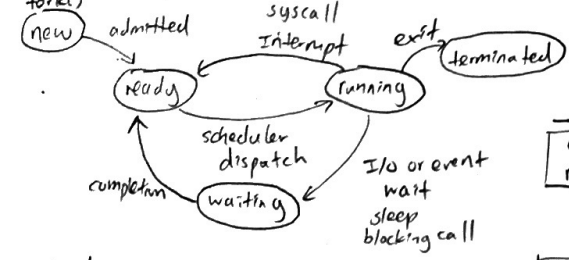 new
admitted
syscall
Interrupt
exit
terminated
ready
running
scheduler
dispatch
I/o or event
wait
sleep
blocking call
completion
waiting